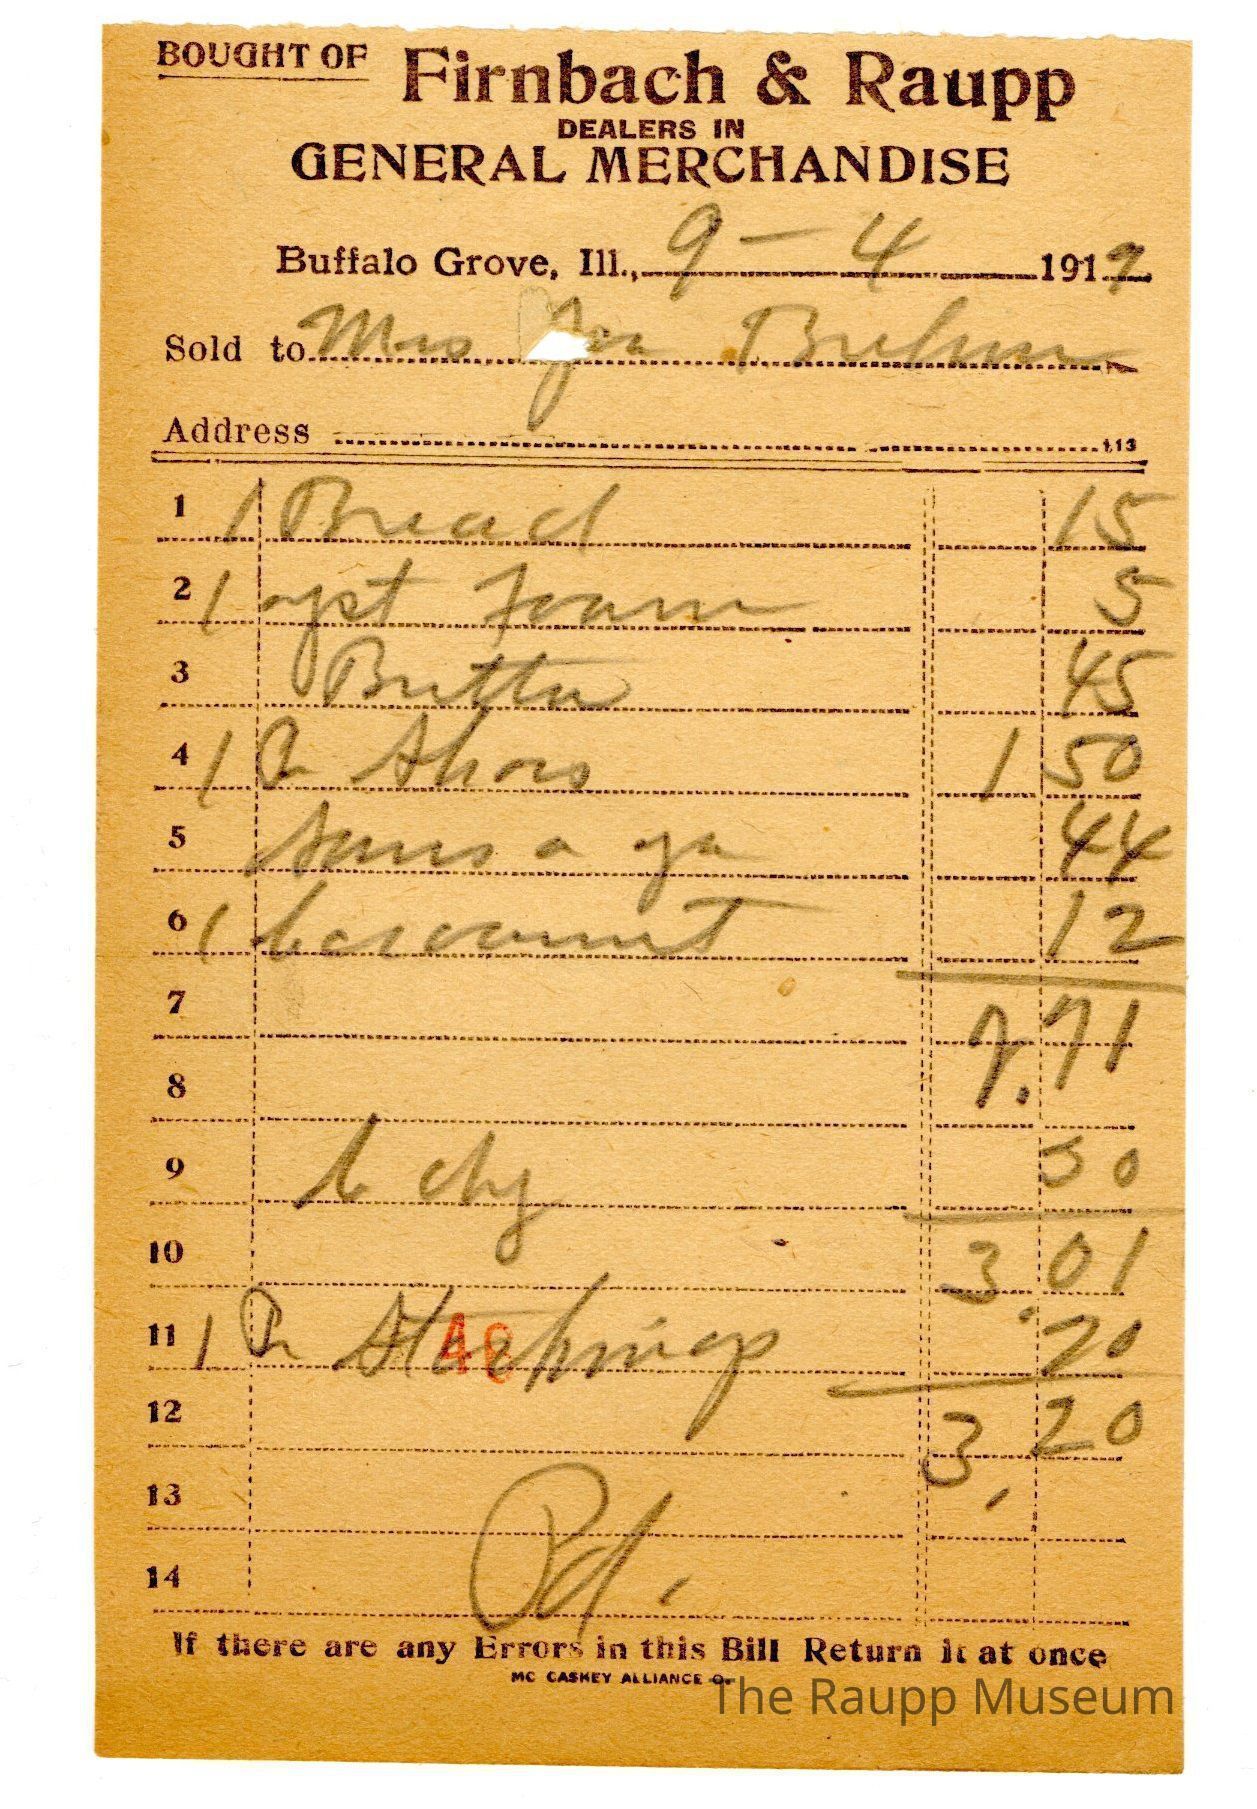 BOUGHT OF Firnbach & Raupp
DEALERS IN
GENERAL MERCHANDISE
Buffalo Grove, Ill., 9 - 4 191
Sold to Mrs
Address
113
1 1 Bread 15
2 1 Foam 5
3 Butter 45
4 1 Pr Shoes 1 50
5 44
6 1 12
7 2.71
8
9 30
10 3.01
11 1 Pr 20
12 3,20
13
14 Pd.
If there are any Errors in this Bill Return it at once
MC CASKEY ALLIANCE O.
The Raupp Museum